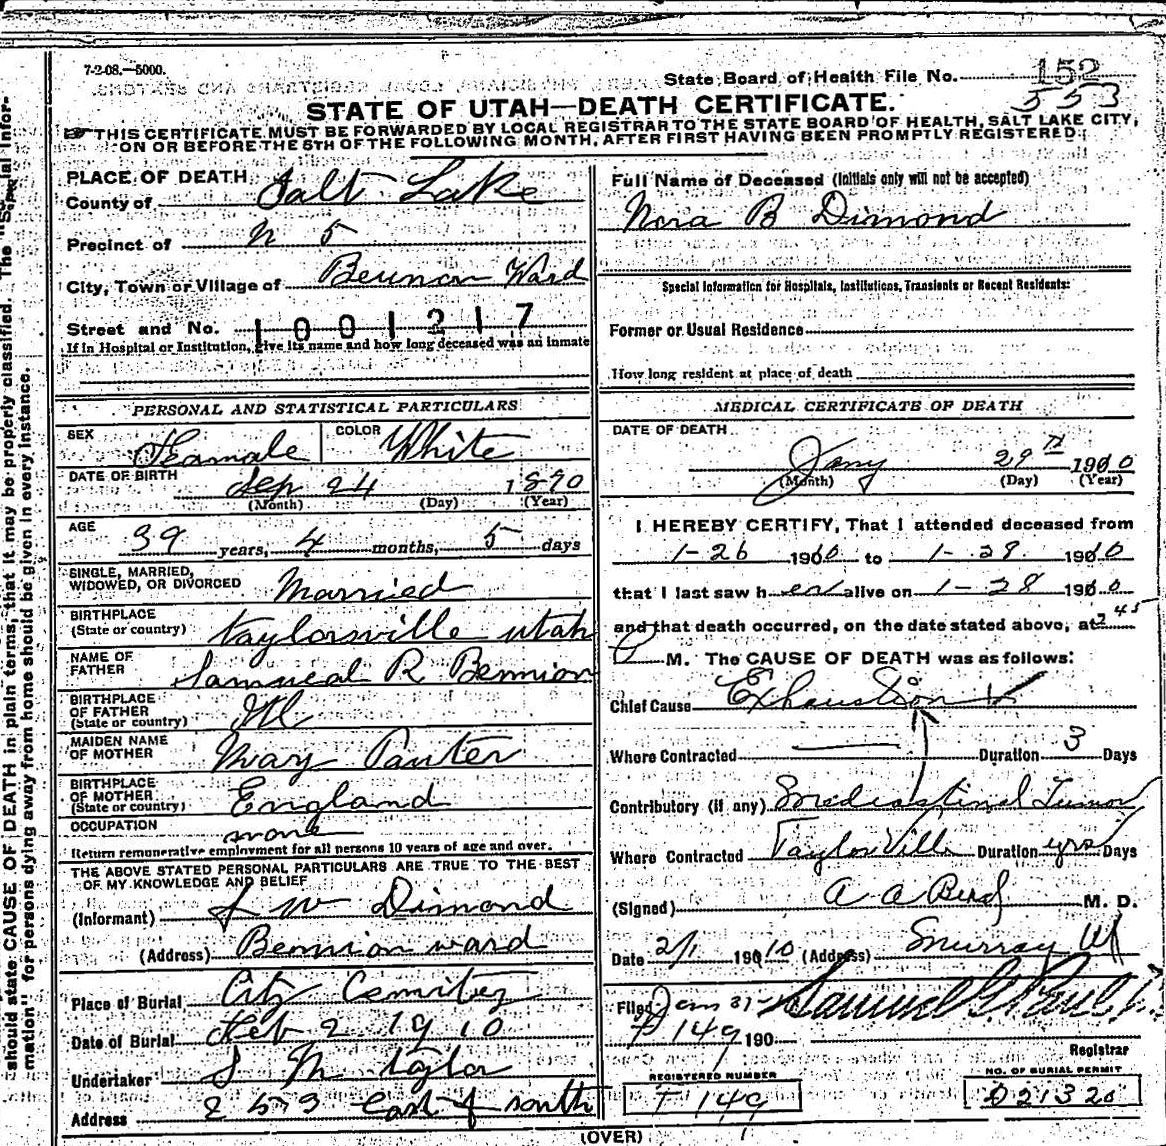 7-2-08.—5000.
State Board of Health File No. 152
553
STATE OF UTAH—DEATH CERTIFICATE.
THIS CERTIFICATE MUST BE FORWARDED BY LOCAL REGISTRAR TO THE STATE BOARD OF HEALTH, SALT LAKE CITY,
ON OR BEFORE THE 5TH OF THE FOLLOWING MONTH, AFTER FIRST HAVING BEEN PROMPTLY REGISTERED
PLACE OF DEATH
County of Salt Lake
Precinct of N 5
City, Town or Village of Ward
Street and No. 1001217
If in Hospital or Institution, give its name and how long deceased was an inmate
PERSONAL AND STATISTICAL PARTICULARS
SEX Feamale COLOR White
DATE OF BIRTH Sep 24 1870
(Month) (Day) (Year)
AGE
39 years, 4 months, 5 days
SINGLE, MARRIED,
WIDOWED, OR DIVORCED Married
BIRTHPLACE
(State or country) Taylorsville utah
NAME OF
FATHER R Bennion
BIRTHPLACE
OF FATHER
(State or country) Ill
MAIDEN NAME
OF MOTHER Mary Panter
BIRTHPLACE
OF MOTHER
(State or country) England
OCCUPATION none
Return remunerative employment for all persons 10 years of age and over.
THE ABOVE STATED PERSONAL PARTICULARS ARE TRUE TO THE BEST
OF MY KNOWLEDGE AND BELIEF
(Informant) J W Dimond
(Address) Bennion ward
Place of Burial City Cemitey
Date of Burial Feb 2 1910
Undertaker S M Taylor
Address 253 East of south
Full Name of Deceased (Initials only will not be accepted)
Nora B Dimond
Special Information for Hospitals, Institutions, Transients or Recent Residents:
Former or Usual Residence
How long resident at place of death
MEDICAL CERTIFICATE OF DEATH
DATE OF DEATH
Jany 29th 1910
(Month) (Day) (Year)
I HEREBY CERTIFY, That I attended deceased from
1-26 1910 to 1-29. 1910
that I last saw her alive on 1-28 1910
and that death occurred, on the date stated above, at 2 45
P M. The CAUSE OF DEATH was as follows:
Chief Cause Exhaustion
Where Contracted Duration 3 Days
Contributory (if any) Mediastinal Tumor
Where Contracted Taylorsville Duration yrs Days
(Signed) A A Bird M. D.
Date 2/1 1910 (Address) Murray Ut
Filed Jan 31- Samuel G. Paul
F 149 190
Registrar
REGISTERED NUMBER
F 149
NO. OF BURIAL PERMIT
D21320
(OVER)
should state CAUSE OF DEATH in plain terms, that it may be properly classified. The "Special Infor-
mation" for persons dying away from home should be given in every instance.